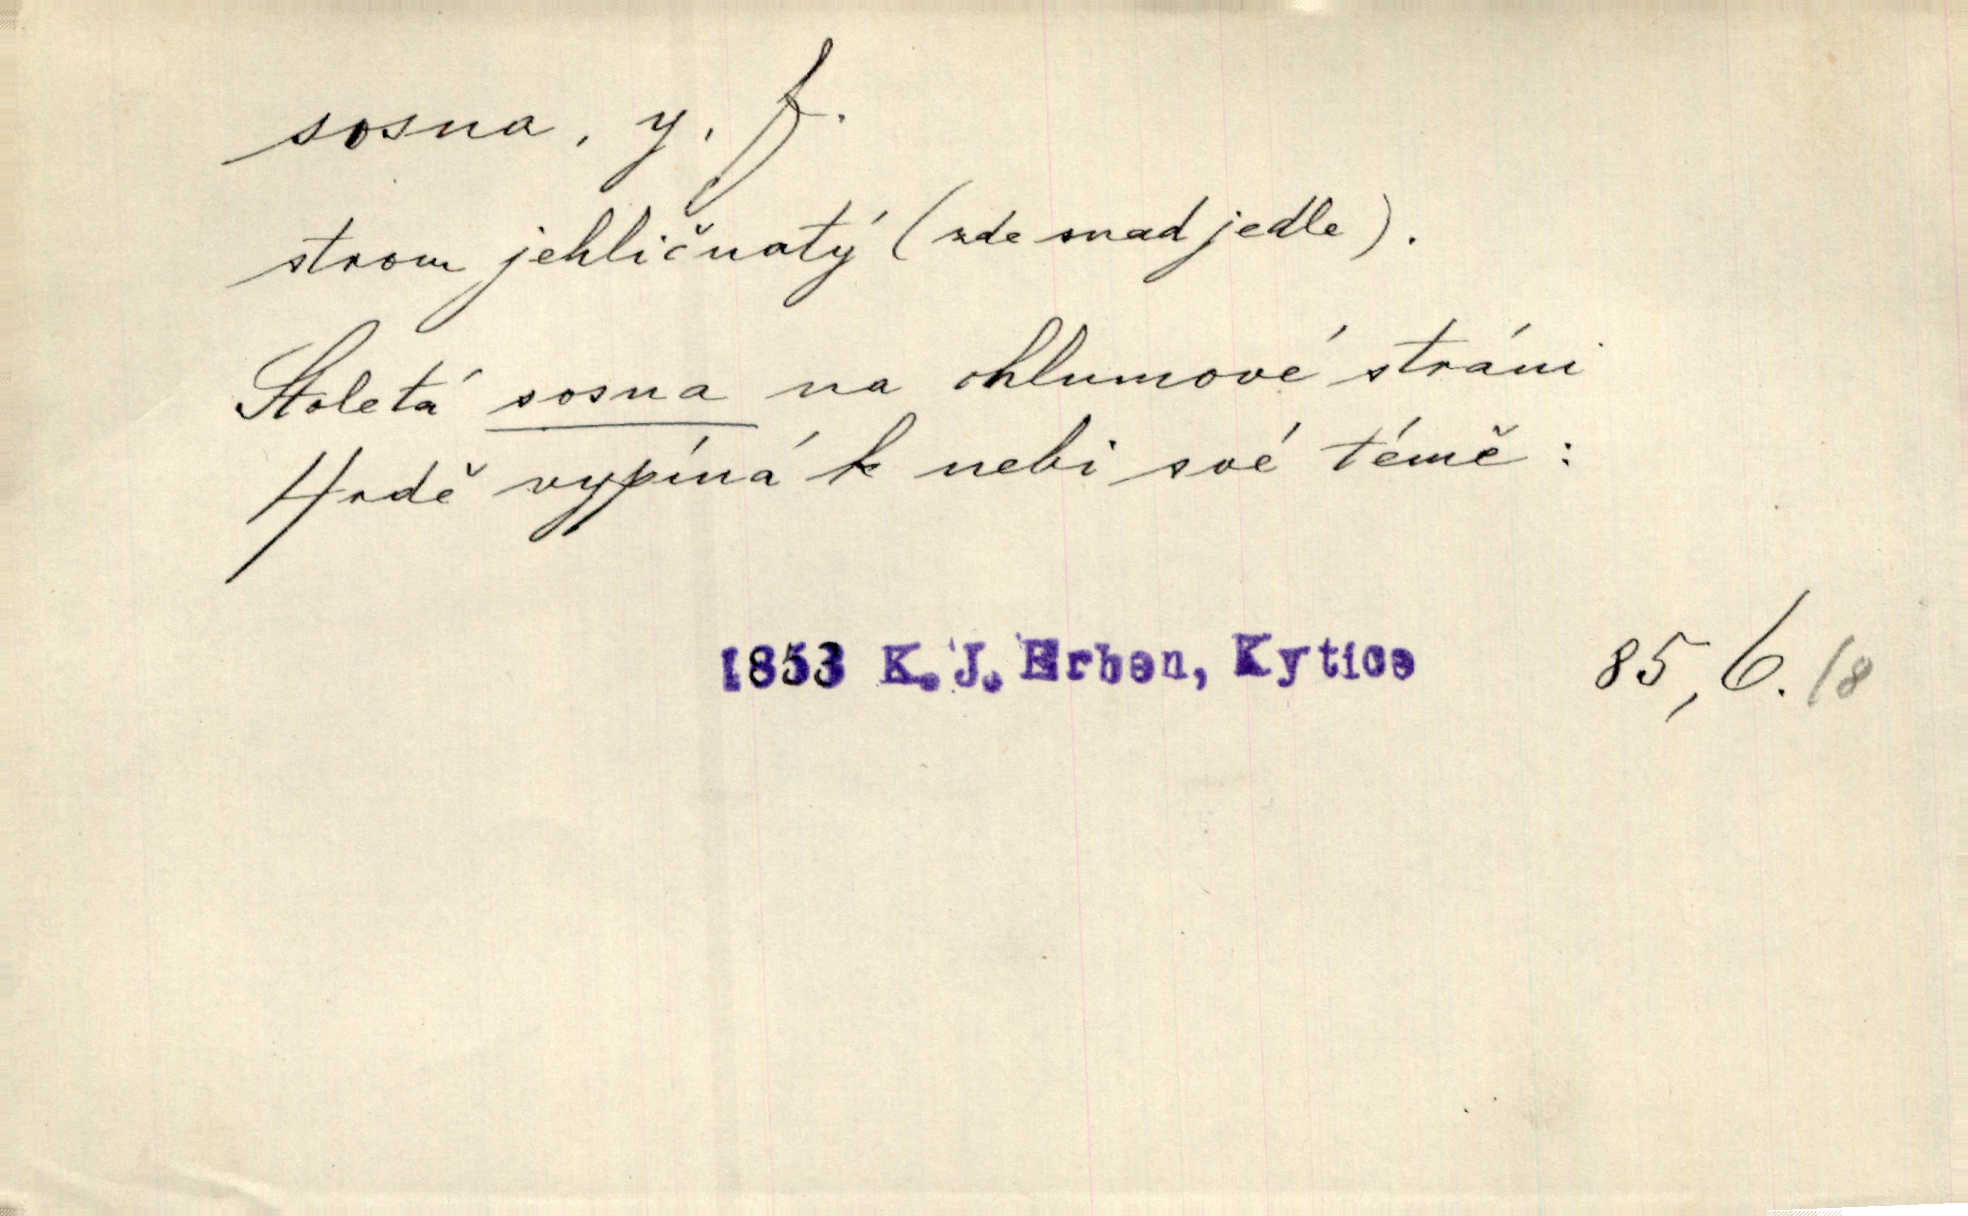 sosna, y, f.
strom jehličnatý (zde snad jedle).
Stoletá sosna na chlumové stráni
Hrdě vypíná k nebi své témě:
1853 K. J. Erben, Kytice 85, 6. /8